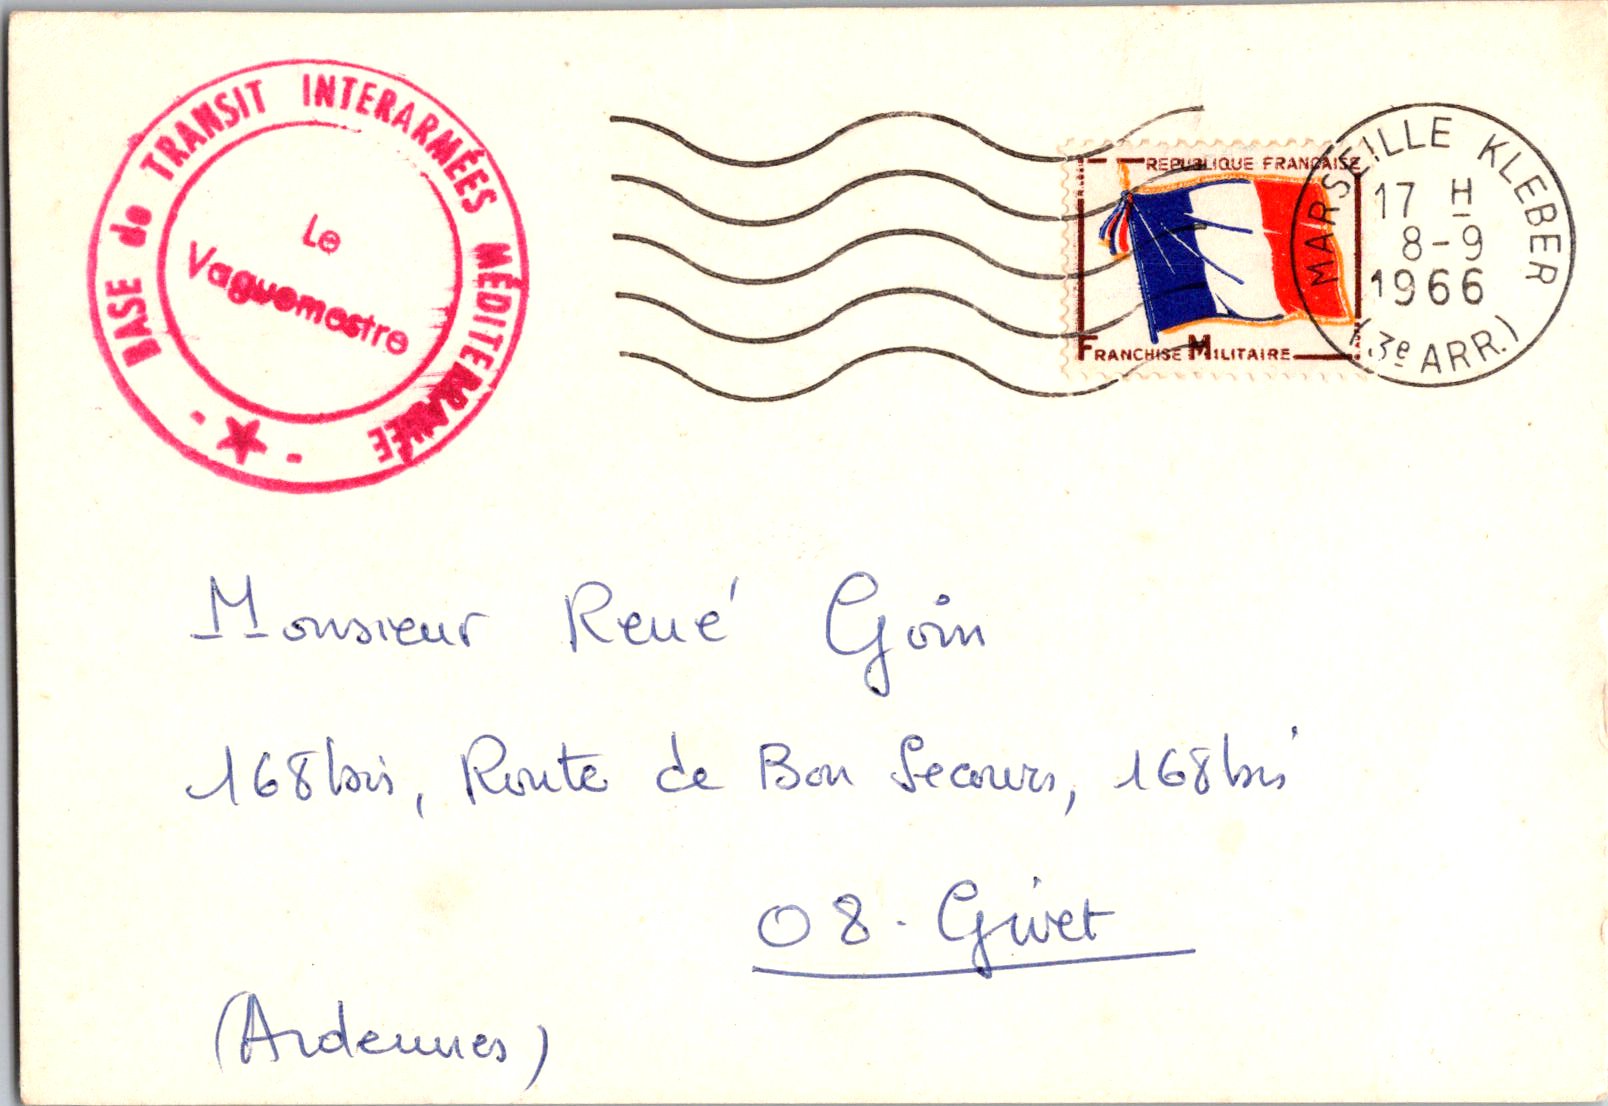 BASE de TRANSIT INTERARMÉES MÉDITERRANÉE
Le
Vaguemestre
REPUBLIQUE FRANÇAISE
FRANCHISE MILITAIRE
MARSEILLE KLEBER
17 H
8-9
1966
(3e ARR.)
Monsieur René Goin
168bis, Route de Bon Secours, 168bis
08 - Givet
(Ardennes)